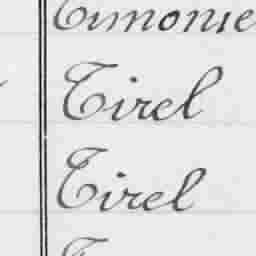 Timonie
Tirel
Tirel